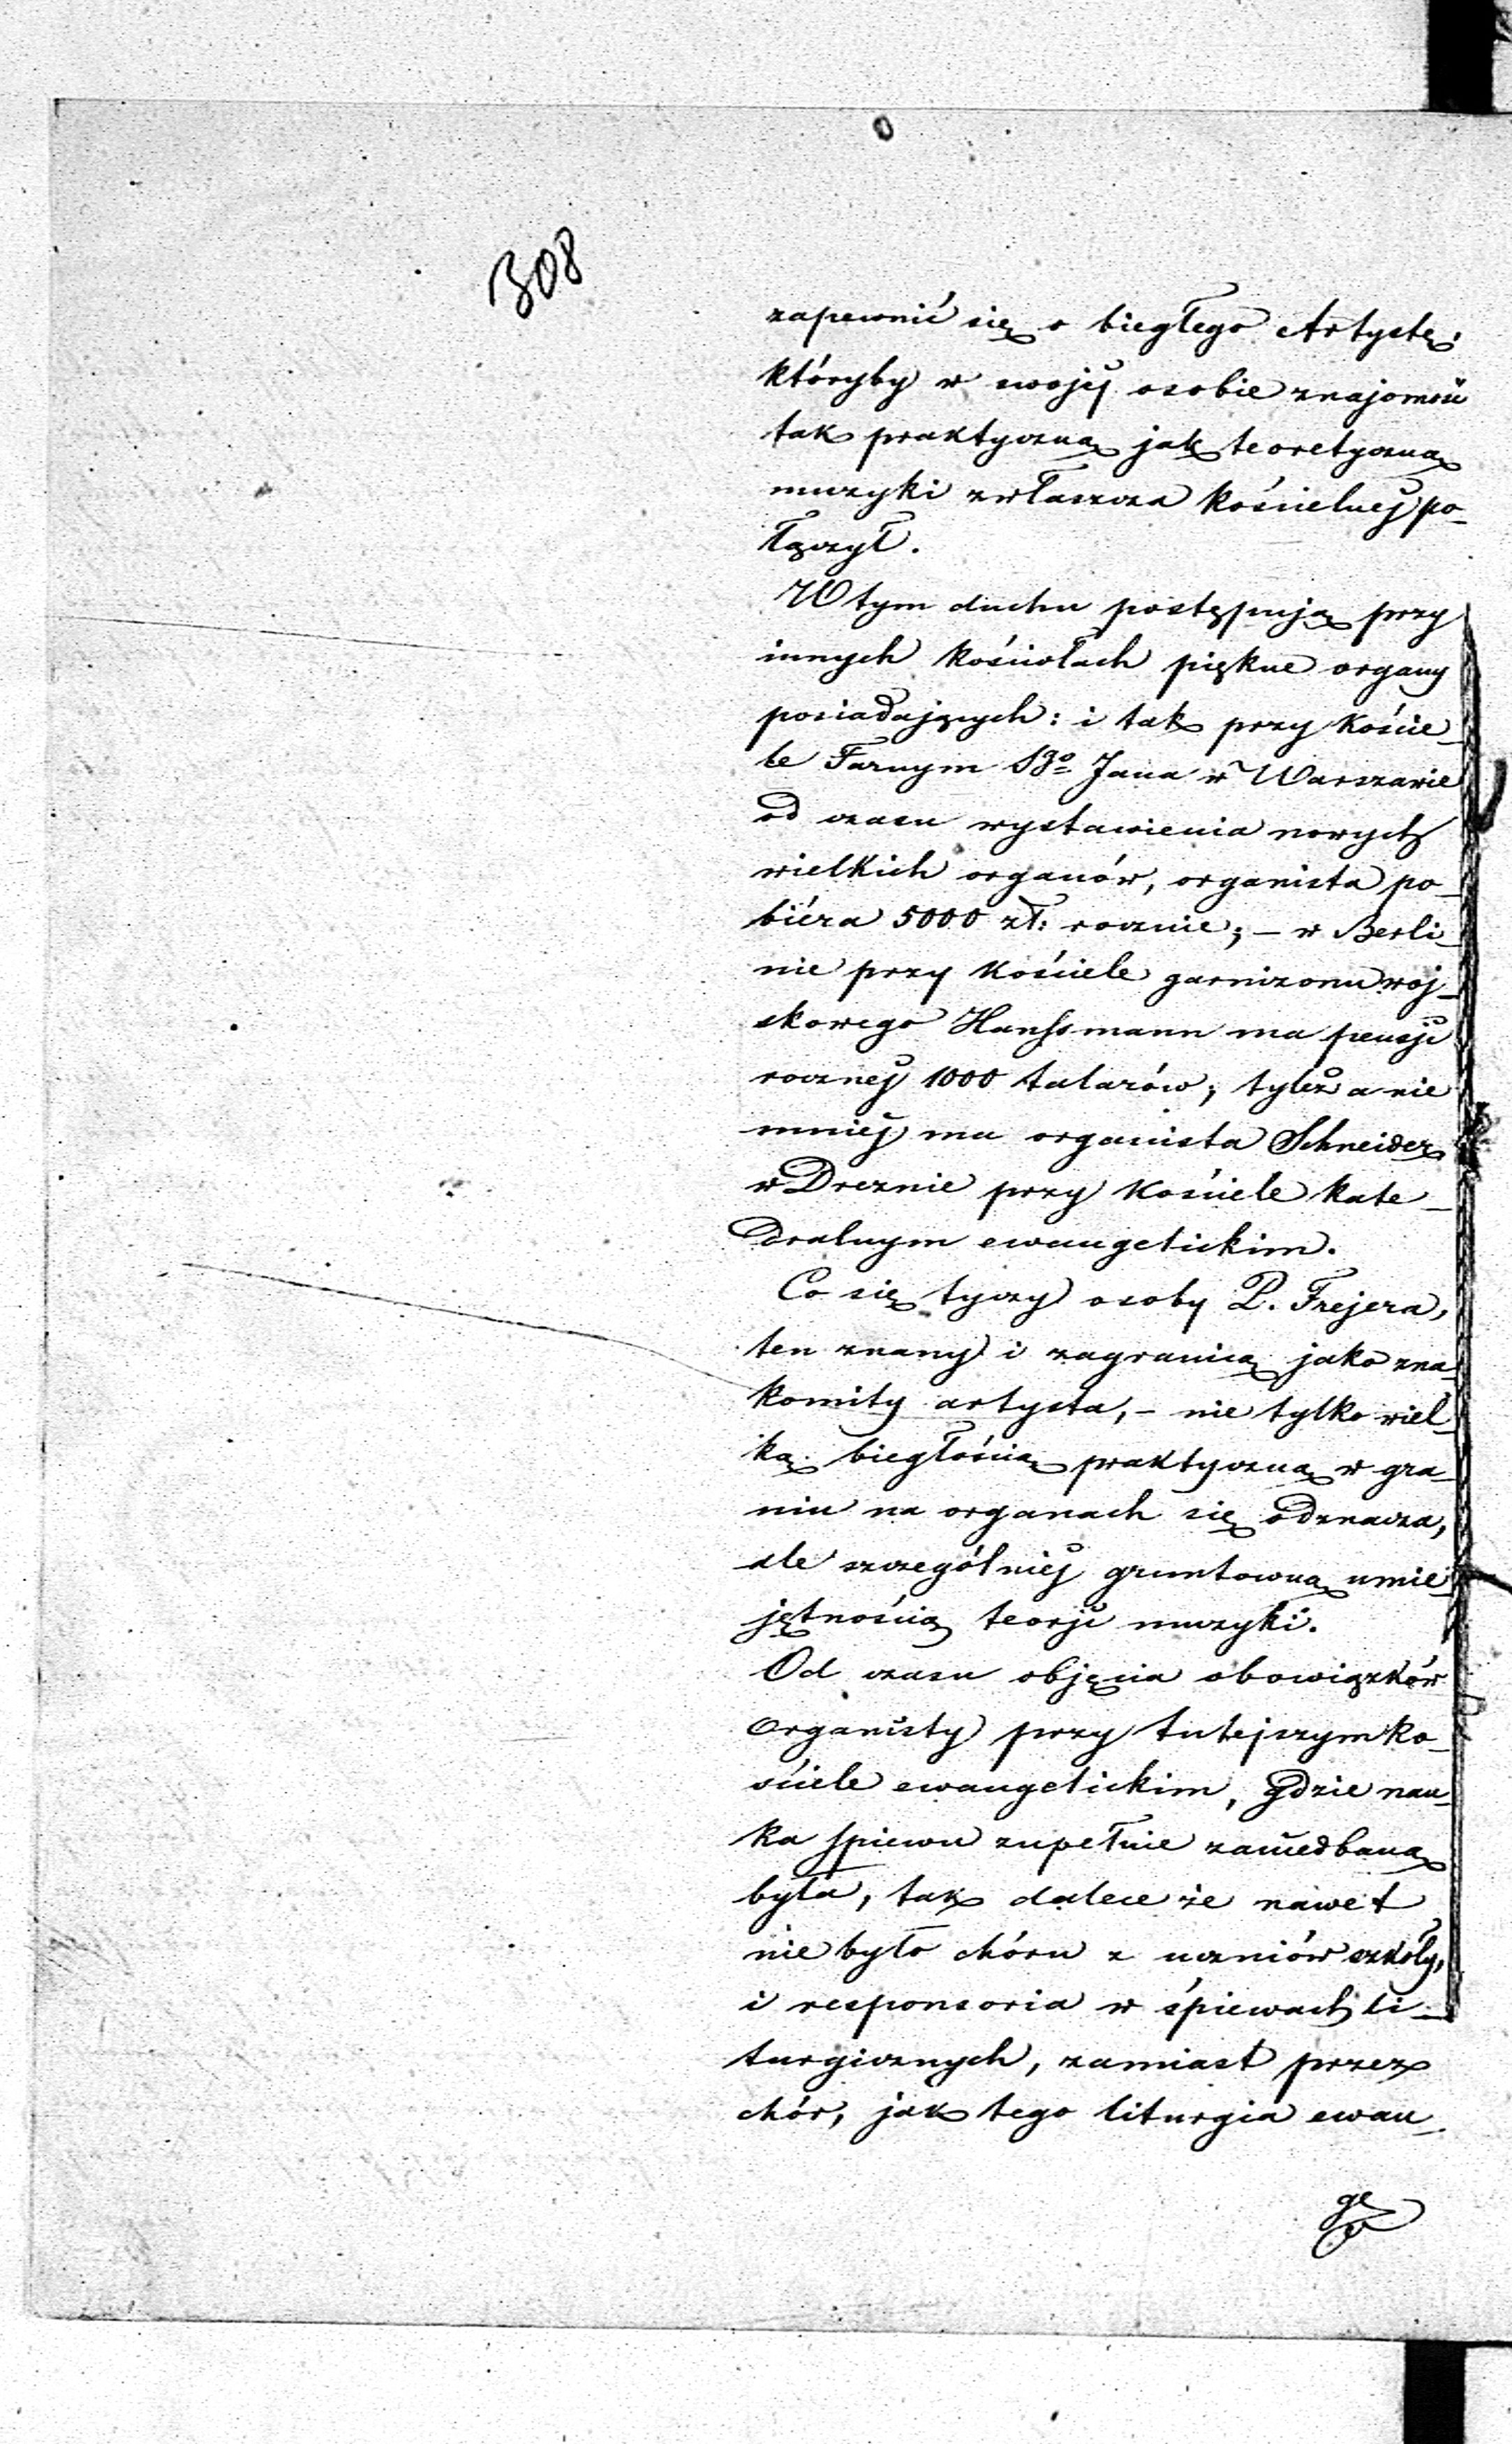 308
zapewnić się o biegłego Artystę,
któryby w swojéj osobie znajomość
tak praktyczną jak teoretyczną
muzyki zwłaszcza kościelnéj po_
łączył.
W tym duchu postępują przy
innych kościołach piękne organy
posiadających: i tak przy Koście_
le Farnym Sgo Jana w Warszawie
od czasu wystawienia nowych
wielkich organów, organista po_
biéra 5000 zł: rocznie; – w Berli_
nie przy Kościele garnizonu woj_
skowego Hansmann ma pensji
rocznéj 1000 talarów; tyleż a nie
mniéj ma organista Schneider
w Dreznie przy Kościele kate_
dralnym ewangelickim.
Co się tyczy osoby P. Frejera,
ten znany i zagranicą jako zna_
komity artysta, – nie tylko wiel_
ką biegłością praktyczną w gra_
niu na organach się odznacza,
ale szczególniéj gruntowną umie_
jętnością teorji muzyki.
Od czasu objęcia obowiązków
Organisty przy tutejszym ko_
ściele ewangelickim, gdzie nau_
ka spiewu zupełnie zaniedbaną
była, tak dalece że nawet
nie było chóru z uczniów szkoły,
i responsoria w śpiewach li_
turgicznych, zamiast przez
chór, jak tego liturgia ewan_
ge